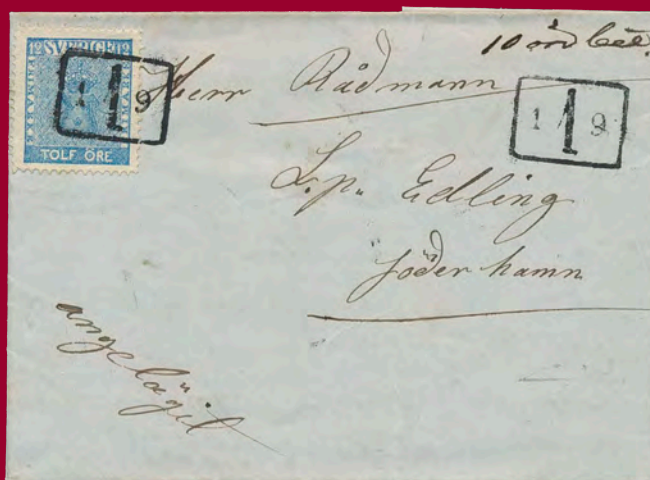 12 SVERIGE 12
TOLF ÖRE
1 1 9
1 1 9
Herr Rådmann
L. p. Edling
Söderhamn
angelägit